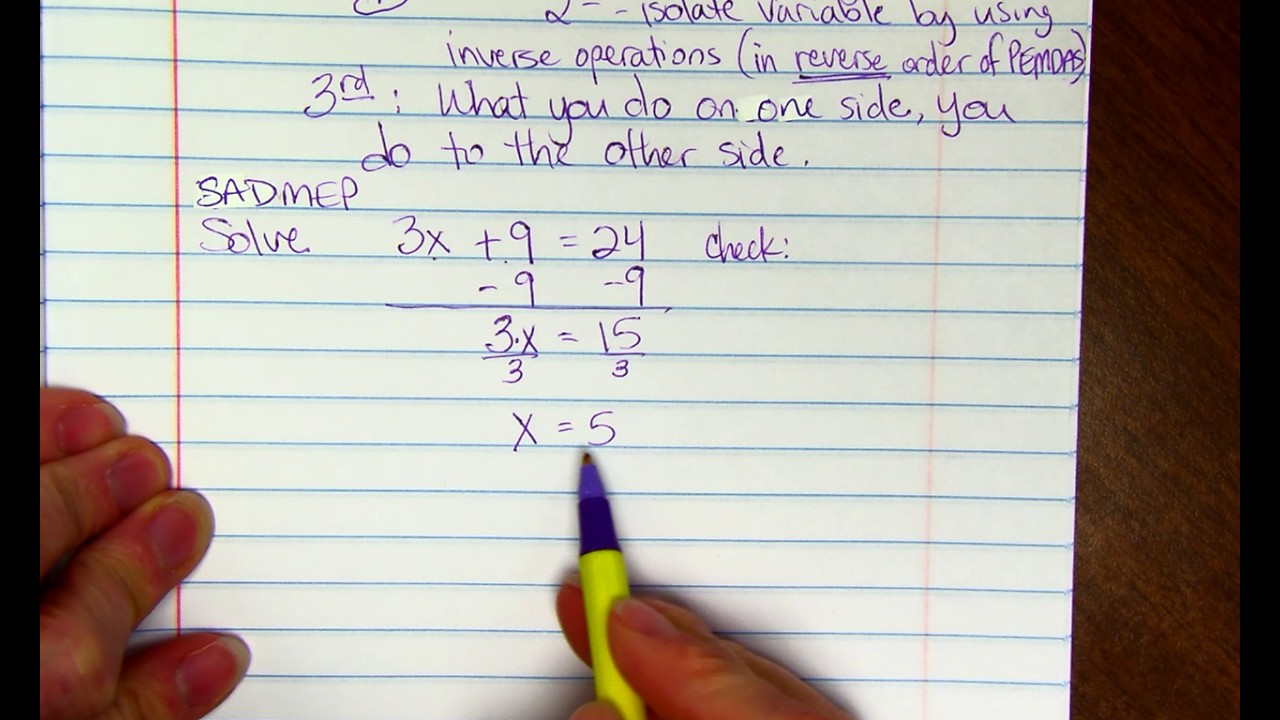 2nd - isolate variable by using
inverse operations (in reverse order of PEMDAS)
3rd: What you do on one side, you
do to the other side.
SADMEP
Solve 3x + 9 = 24 check:
- 9 -9
3·x = 15
3 3
x = 5